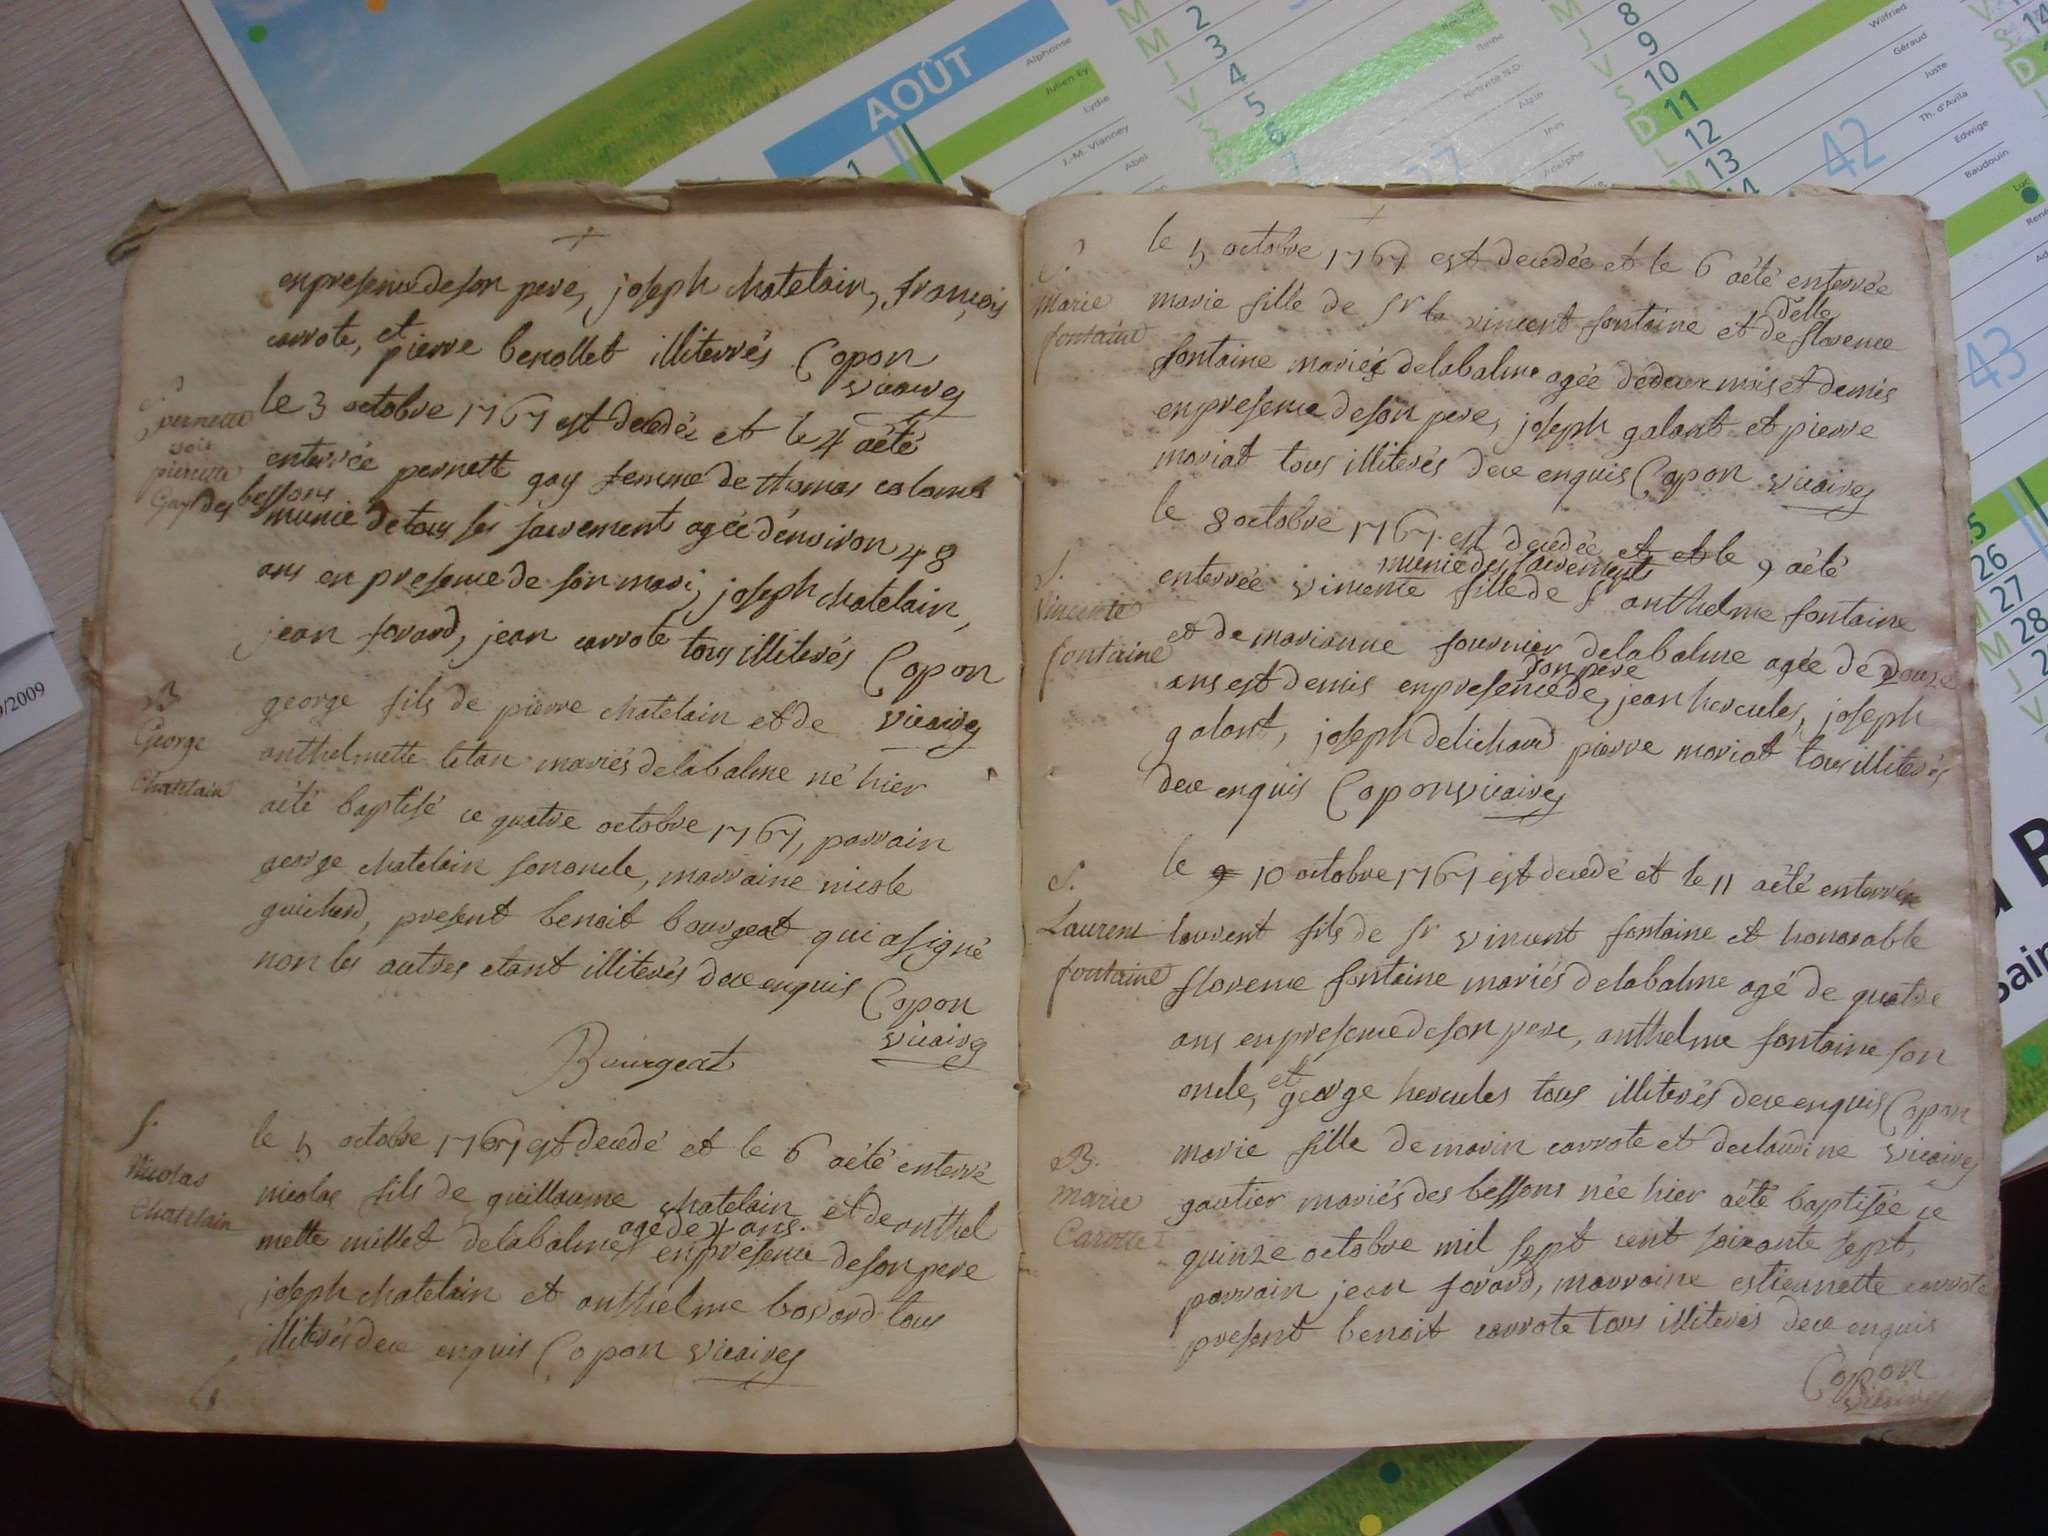 AOÛT
Alphonse
Julien Ey
Lydie
J.-M. Vianney
Abel
1
M 2
M 3
J 4
V 5
6
7
Reine
Nativité N.D.
Alain
Inès
Adelphe
37
M
J 8
V 9
S 10
D 11
L 12
M 13
14
Wilfried
Géraud
Juste
Th. d'Avila
Edwige
Baudouin
Luc
René
42
43
V
S 14
D
25
26
M 27
M 28
J 2
V
/2009
R
Sain
enpresence de son pere, joseph chatelain, françois
carrote, et pierre benollet illiterrés Copon
vicaire
S. pernette
voit
pierrette
Gay des bessons
le 3 octobre 1767 est decedée et le 4 aété
enterrée pernette gay femme de thomas colomb
munie de tous ses sacrement agée d'environ 48
ans en presence de son mari, joseph chatelain,
jean forard, jean carrote tous illiterés Copon
vicaire
B
George
Chatelain
george fils de pierre chatelain et de
anthelmette tetan mariés delabalme né hier
aété baptisé ce quatre octobre 1767, parrain
george chatelain sononcle, marraine nicole
guichard, present benoit bourgeat qui asigné
non les autres etant illiterés dece enquis Copon
vicaire
Bourgeat
S.
Nicolas
Chatelain
le 5 octobre 1767 est decedé et le 6 aété enterré
nicolas fils de guillaume chatelain et de anthel
mette millet delabalme agé de 4 ans enpresence de son pere
joseph chatelain et anthelme bovard tous
illiterés dece enquis Copon vicaire
S.
Marie
fontaine
le 5 octobre 1767 est decedée et le 6 aété enterrée
marie fille de sr vincent fontaine et de delle florence
fontaine mariés delabalme agée dedeux mois et demis
enpresence deson pere, joseph galant et pierre
moriat tous illiterés dece enquis Copon vicaire
S.
vincente
fontaine
le 8 octobre 1767 est decedée et et le 9 aété
enterrée vincente munie des sacrements fille de sr anthelme fontaine
et de marianne fournier delabalme agée de douze
ans est demis enpresence de son pere, jean hercules, joseph
galant, joseph delichard pierre moriat tous illiterés
dece enquis Copon vicaire
S.
Laurent
fontaine
le 9 10 octobre 1767 est decedé et le 11 aété enterrée
laurent fils de sr vincent fontaine et honorable
florence fontaine mariés delabalme agé de quatre
ans enpresence deson pere, anthelme fontaine son
oncle, et george hercules tous illiterés dece enquis Copon
vicaire
B.
marie
Carotte
marie fille de marin carrote et declaudine
gautier mariés des bessons née hier aété baptisée ce
quinze octobre mil sept cent soixante sept,
parrain jean forard, marraine estiennette carrote
present benoit carrote tous illiterés dece enquis
Copon
vicaire